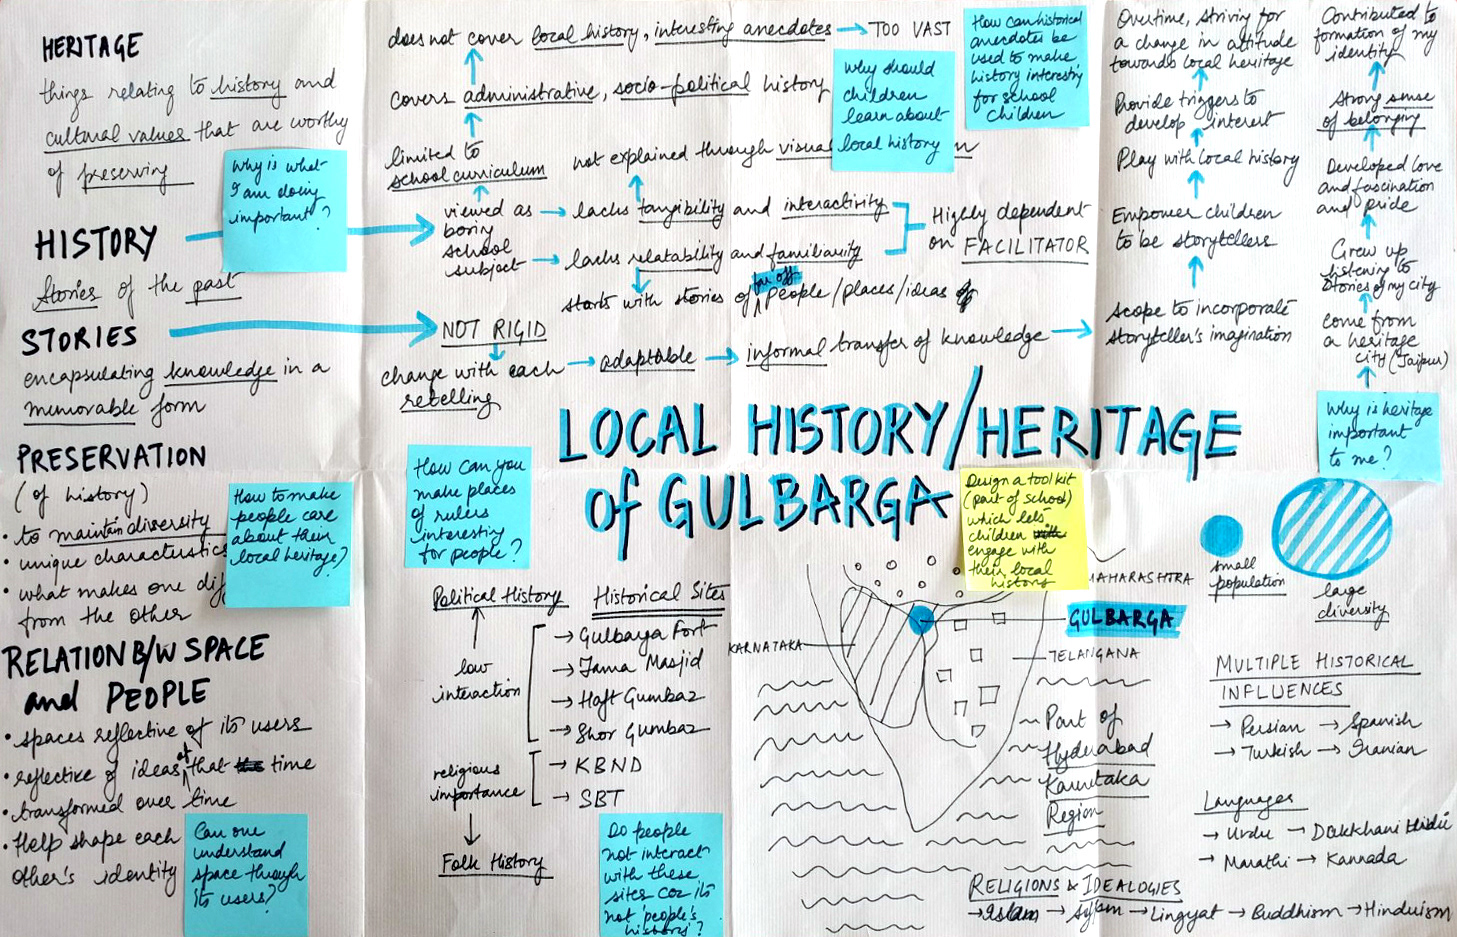 HERITAGE
things relating to history and
cultural values that are worthy
of preserving
Why is what
I am doing
important?
HISTORY
Stories of the past
STORIES
encapsulating knowledge in a
memorable form
PRESERVATION
(of history)
• to maintain diversity
• unique characteristics
• what makes one dif
from the other
How to make
people care
about their
local heritage?
RELATION B/W SPACE
and PEOPLE
• spaces reflective of its users
• reflective of ideas at that time
• transformed over time
• Help shape each
other's identity
Can one
understand
space through
its users?
does not cover local history, interesting anecdotes → TOO VAST
covers administrative, socio-political history
limited to
school curriculum
not explained through visual
viewed as
boring
school
subject
→ lacks tangibility and interactivity
→ lacks relatability and familiarity
starts with stories of far off people/places/ideas
Highly dependent
on FACILITATOR
NOT RIGID
change with each
retelling
→ adaptable → informal transfer of knowledge →
Why should
children
learn about
local history
How can historical
anecdotes be
used to make
history interesting
for school
children
Overtime, striving for
a change in attitude
towards local heritage
Provide triggers to
develop interest
Play with local history
Empower children
to be storytellers
scope to incorporate
storyteller's imagination
Contributed to
formation of my
identity
Strong sense
of belonging
Developed love
and fascination
and pride
Grew up
listening to
stories of my city
come from
a heritage
city (Jaipur)
Why is heritage
important
to me?
LOCAL HISTORY/HERITAGE
of GULBARGA
How can you
make places
of rulers
interesting
for people?
Design a toolkit
(part of school)
which lets
children
engage with
their local
history
Political History
low
interaction
religious
importance
Folk History
Historical Sites
→ Gulbarga Fort
→ Jama Masjid
→ Haft Gumbaz
→ Shor Gumbaz
→ KBND
→ SBT
Do people
not interact
with these
sites coz its
not 'people's
history'?
KARNATAKA
MAHARASHTRA
GULBARGA
TELANGANA
Part of
Hyderabad
Karnataka
Region
small
population
large
diversity
MULTIPLE HISTORICAL
INFLUENCES
→ Persian → Spanish
→ Turkish → Iranian
Languages
→ Urdu → Dakkhani Urdu
→ Marathi → Kannada
RELIGIONS & IDEALOGIES
→ Islam → Sufism → Lingyat → Buddhism → Hinduism